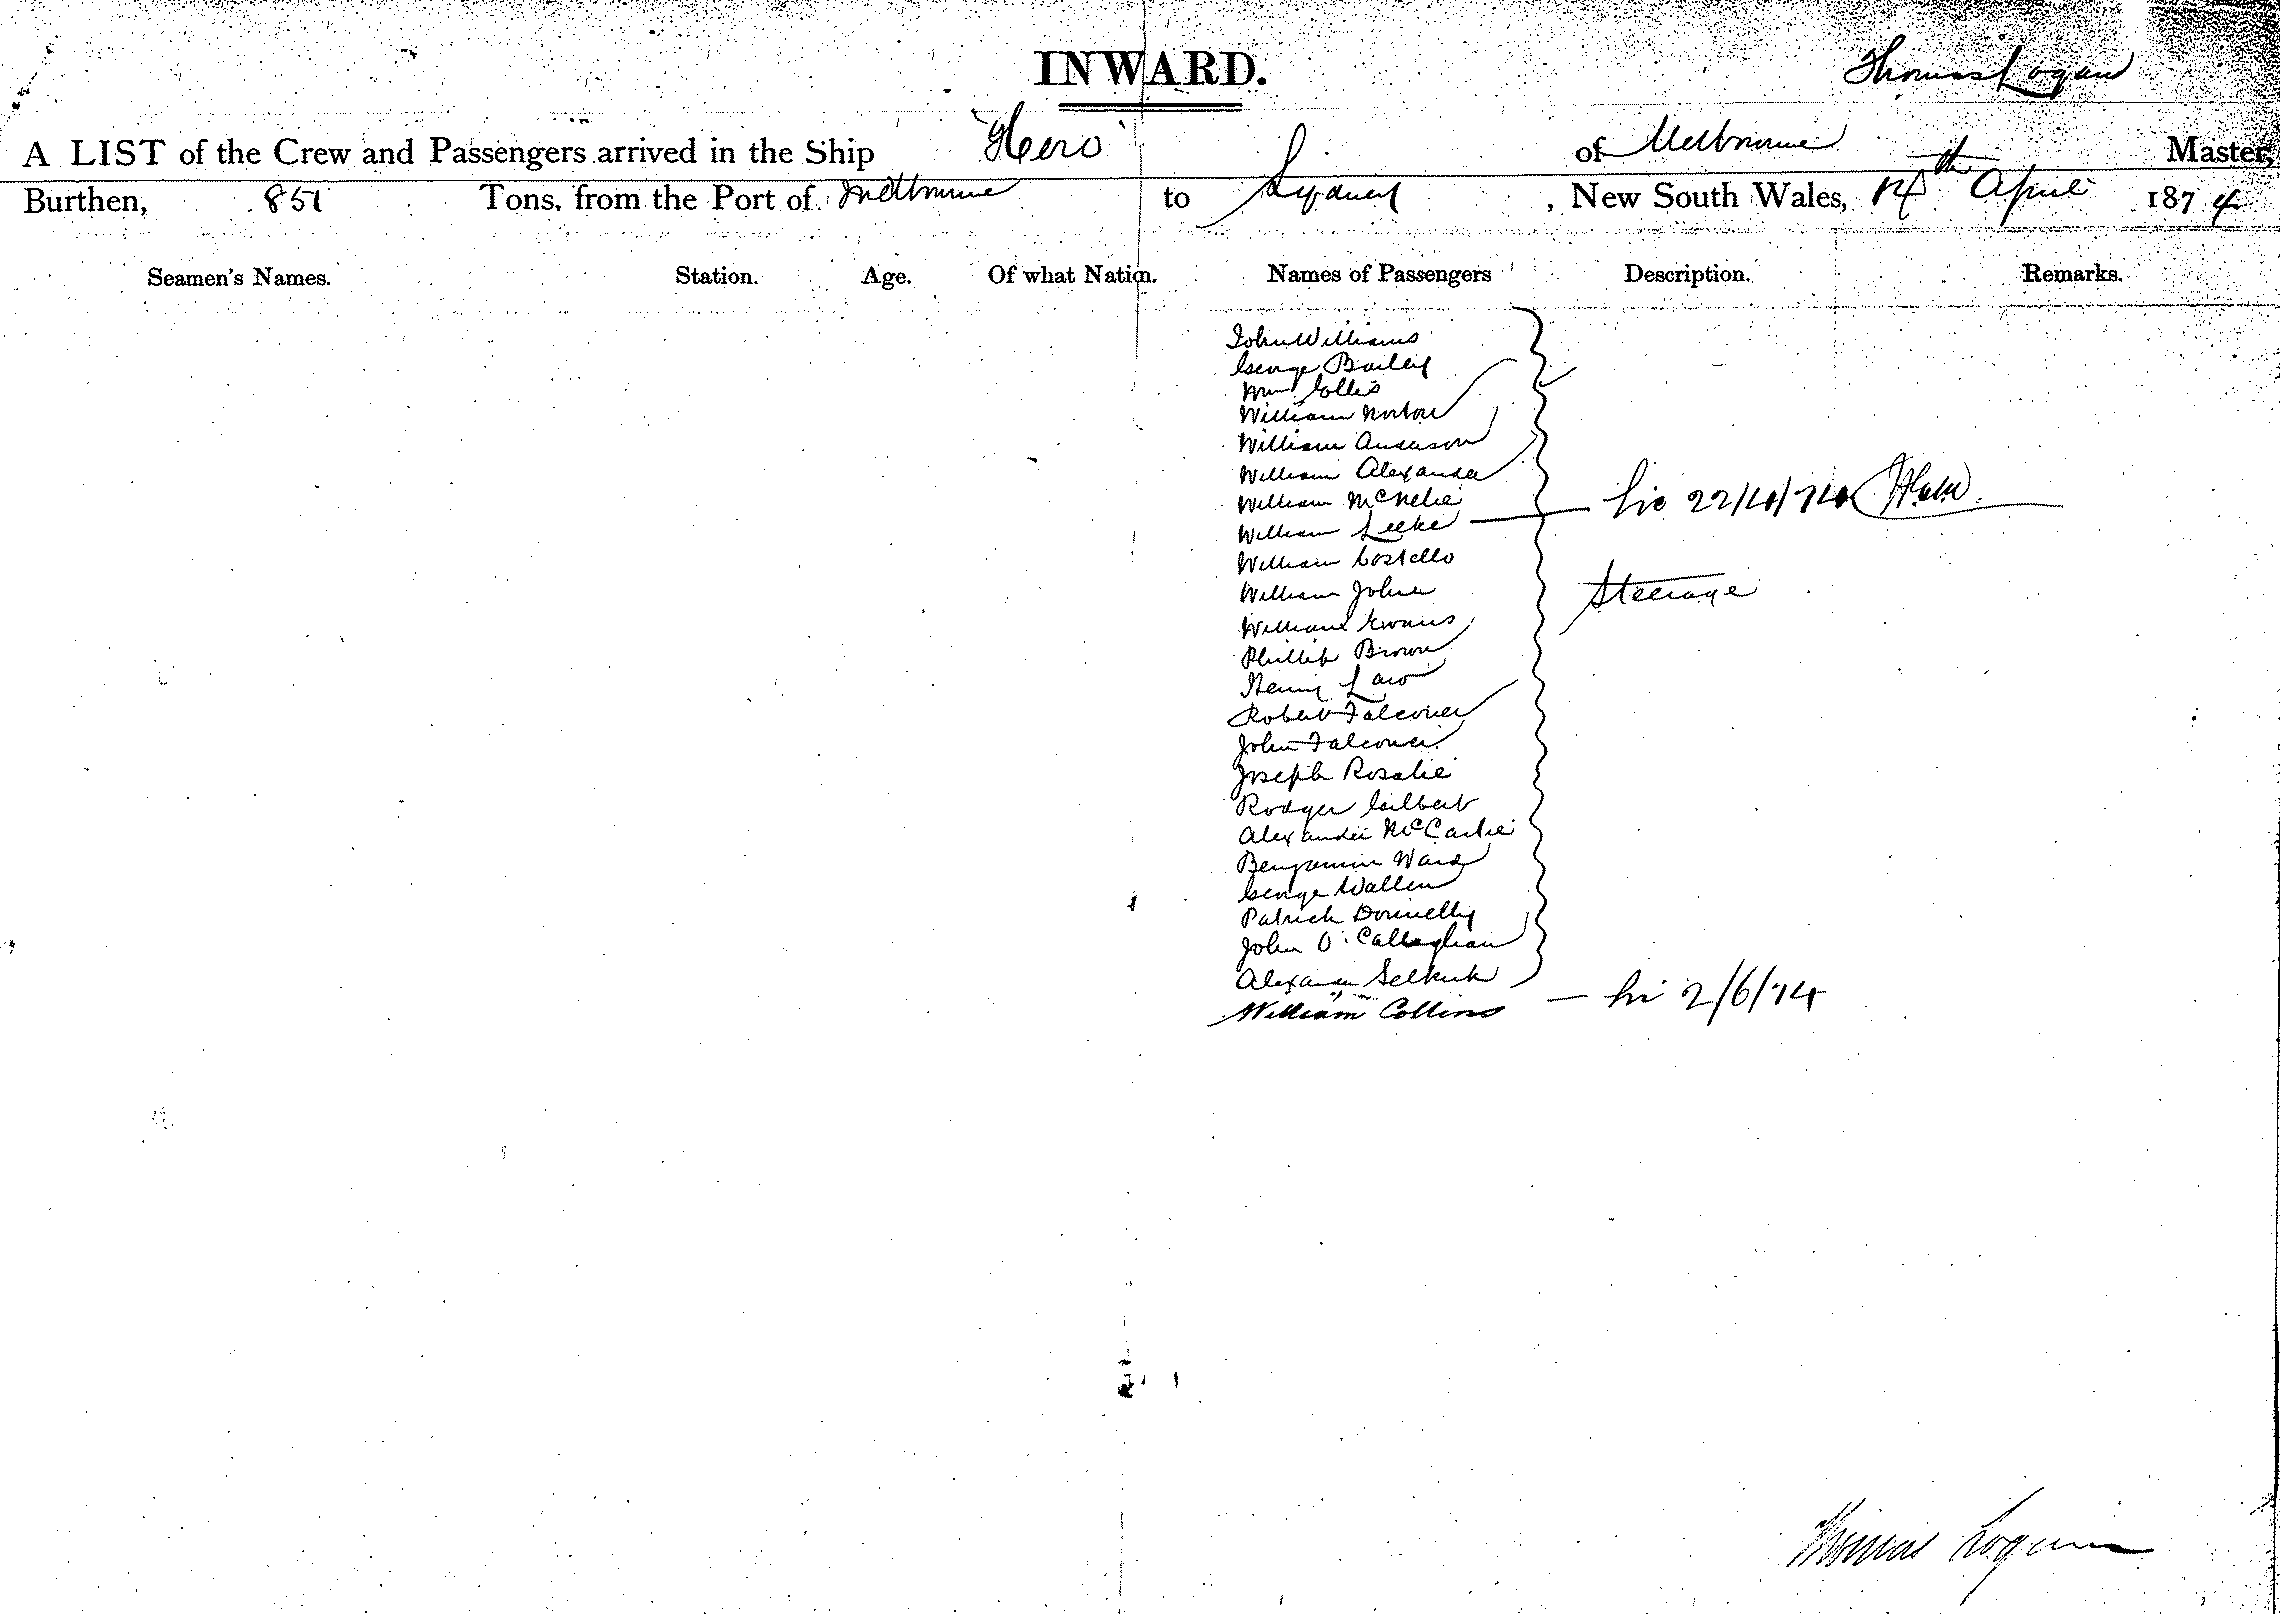 INWARD.
Thomas Logan
A LIST of the Crew and Passengers arrived in the Ship "Hero" of Melbourne Master,
Burthen, 851 Tons, from the Port of Melbourne to Sydney, New South Wales, 14th April 1874
Seamen's Names. Station. Age. Of what Nation. Names of Passengers Description. Remarks.
John Williams
George Bailey
Wm Collis
William Norton
William Anderson
William Alexander
William
William Leeke 22/10/74
William Costello
William
Steerage
William Evans
Phillip Brown
Henry Law
Robert Falconer
John Falconer
Joseph Rosalie
Rodger Gilbert
Alexander McCarlie
Benjamin Ward
George Wallen
Patrick Donnelly
John O'Callaghan
Alexander Selkirk
William Collins 2/6/74
Thomas Logan